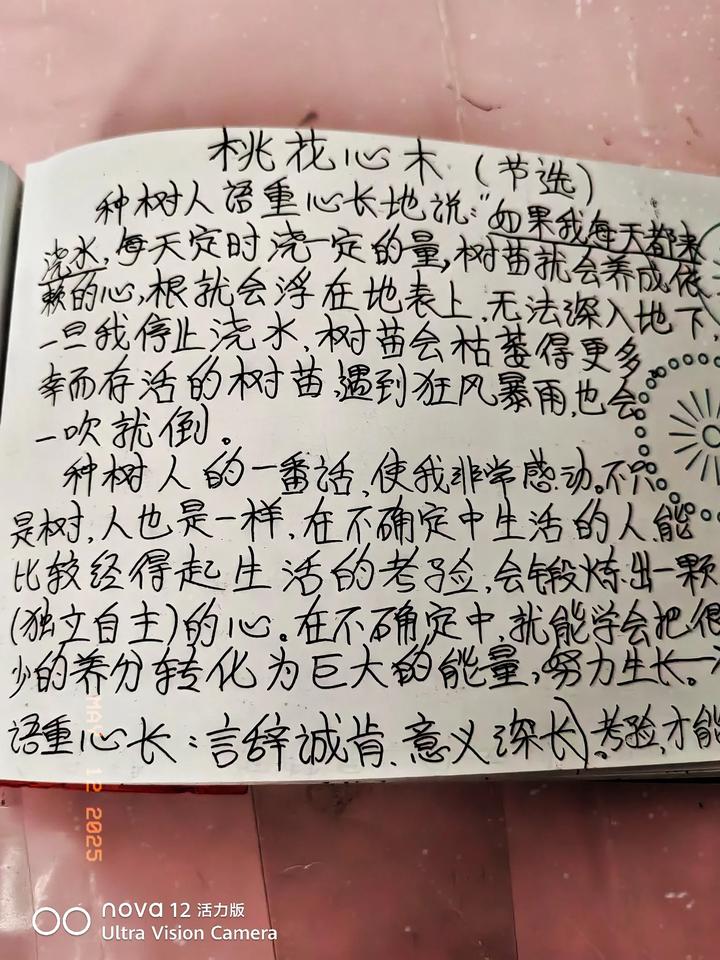 桃花心木(节选)
种树人语重心长地说:“如果我每天都来
浇水,每天定时浇一定的量,树苗就会养成依
赖的心,根就会浮在地表上,无法深入地下,
一旦我停止浇水,树苗会枯萎得更多,
幸而存活的树苗,遇到狂风暴雨,也会
一吹就倒。
种树人的一番话,使我非常感动。不只
是树,人也是一样,在不确定中生活的人,能
比较经得起生活的考验,会锻炼出一颗
(独立自主)的心。在不确定中,就能学会把很
少的养分转化为巨大的能量,努力生长。→
语重心长:言辞诚肯、意义深长)。考验,才能
MAY 12 2025
nova 12 活力版
Ultra Vision Camera